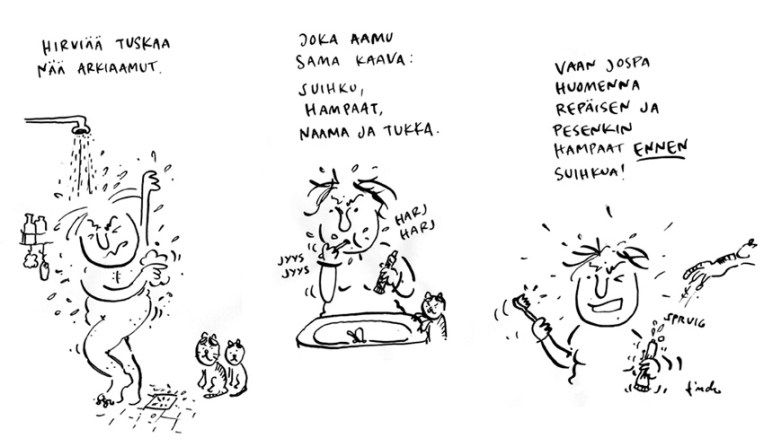 HIRVIÄÄ TUSKAA
NÄÄ ARKIAAMUT.
JOKA AAMU
SAMA KAAVA:
SUIHKU,
HAMPAAT,
NAAMA JA TUKKA.
HARJ
HARJ
JYYS
JYYS
VAAN JOSPA
HUOMENNA
REPÄISEN JA
PESENKIN
HAMPAAT ENNEN
SUIHKUA!
SPRUIG